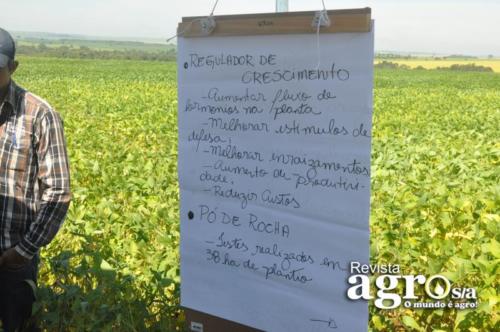 • REGULADOR DE
CRESCIMENTO
- Aumentar fluxo de
hormonios na planta
- Melhorar estímulos de
defesa;
- Melhorar enraizamentos
- Aumento de produtivi-
dade;
- Reduzir Custos
• PÓ DE ROCHA
- Testes realizados em
38 ha de plantio
Revista
agro s/a
O mundo é agro!